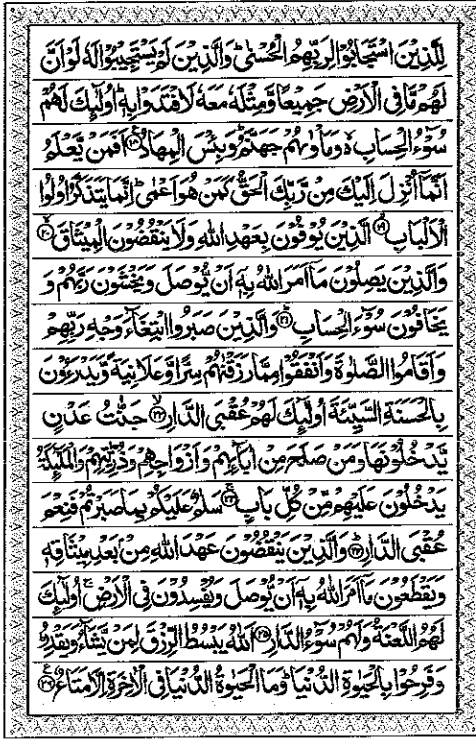 لِلَّذِيْنَ اسْتَجَابُوْا لِرَبِّهِمُ الْحُسْنٰىؕ وَالَّذِيْنَ لَمْ يَسْتَجِيْبُوْا لَهٗ لَوْ اَنَّ
لَهُمْ مَّا فِى الْاَرْضِ جَمِيْعًا وَّمِثْلَهٗ مَعَهٗ لَافْتَدَوْا بِهٖؕ اُولٰٓئِكَ لَهُمْ
سُوْٓءُ الْحِسَابِ ۙ وَمَاْوٰىهُمْ جَهَنَّمُؕ وَبِئْسَ الْمِهَادُ ﴿۱۸﴾ اَفَمَنْ يَّعْلَمُ
اَنَّمَاۤ اُنْزِلَ اِلَيْكَ مِنْ رَّبِّكَ الْحَقُّ كَمَنْ هُوَ اَعْمٰىؕ اِنَّمَا يَتَذَكَّرُ اُولُوا
الْاَلْبَابِ ﴿۱۹﴾ الَّذِيْنَ يُوْفُوْنَ بِعَهْدِ اللّٰهِ وَلَا يَنْقُضُوْنَ الْمِيْثَاقَ ﴿۲۰﴾
وَالَّذِيْنَ يَصِلُوْنَ مَاۤ اَمَرَ اللّٰهُ بِهٖۤ اَنْ يُّوْصَلَ وَيَخْشَوْنَ رَبَّهُمْ وَ
يَخَافُوْنَ سُوْٓءَ الْحِسَابِ ﴿۲۱﴾ وَالَّذِيْنَ صَبَرُوا ابْتِغَآءَ وَجْهِ رَبِّهِمْ
وَاَقَامُوا الصَّلٰوةَ وَاَنْفَقُوْا مِمَّا رَزَقْنٰهُمْ سِرًّا وَّعَلَانِيَةً وَّيَدْرَءُوْنَ
بِالْحَسَنَةِ السَّيِّئَةَ اُولٰٓئِكَ لَهُمْ عُقْبَى الدَّارِ ﴿۲۲﴾ جَنّٰتُ عَدْنٍ
يَّدْخُلُوْنَهَا وَمَنْ صَلَحَ مِنْ اٰبَآئِهِمْ وَاَزْوَاجِهِمْ وَذُرِّيّٰتِهِمْ وَالْمَلٰٓئِكَةُ
يَدْخُلُوْنَ عَلَيْهِمْ مِّنْ كُلِّ بَابٍ ﴿۲۳﴾ سَلٰمٌ عَلَيْكُمْ بِمَا صَبَرْتُمْ فَنِعْمَ
عُقْبَى الدَّارِ ﴿۲۴﴾ وَالَّذِيْنَ يَنْقُضُوْنَ عَهْدَ اللّٰهِ مِنْۢ بَعْدِ مِيْثَاقِهٖ
وَيَقْطَعُوْنَ مَاۤ اَمَرَ اللّٰهُ بِهٖۤ اَنْ يُّوْصَلَ وَيُفْسِدُوْنَ فِى الْاَرْضِۙ اُولٰٓئِكَ
لَهُمُ اللَّعْنَةُ وَلَهُمْ سُوْٓءُ الدَّارِ ﴿۲۵﴾ اَللّٰهُ يَبْسُطُ الرِّزْقَ لِمَنْ يَّشَآءُ وَيَقْدِرُؕ
وَفَرِحُوْا بِالْحَيٰوةِ الدُّنْيَاؕ وَمَا الْحَيٰوةُ الدُّنْيَا فِى الْاٰخِرَةِ اِلَّا مَتَاعٌ ﴿۲۶﴾